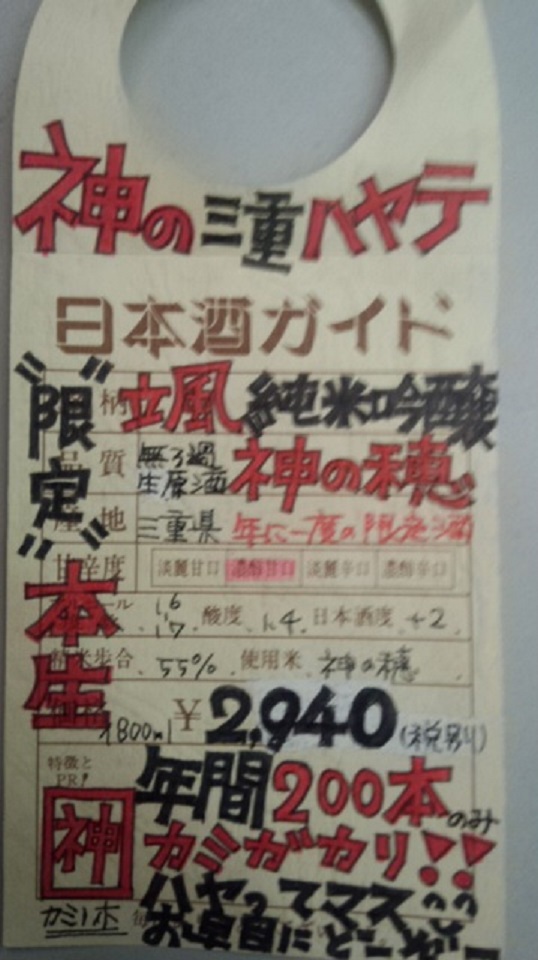 神の三重ハヤテ
日本酒ガイド
"限定"
本生
柄 颯 純米吟醸
品質 無ろ過生原酒 神の穂
産地 三重県 年に一度の限定酒
甘辛度 淡麗甘口 濃醇甘口 淡麗辛口 濃醇辛口
16 17 酸度 1.4 日本酒度 +2
精米歩合 55% 使用米 神の穂
1800ml ¥2,940 (税別)
特徴とPR!
年間200本のみ
神 カミガカリ!!
カミノホ
ハヤってマス
お早目にどーぞ